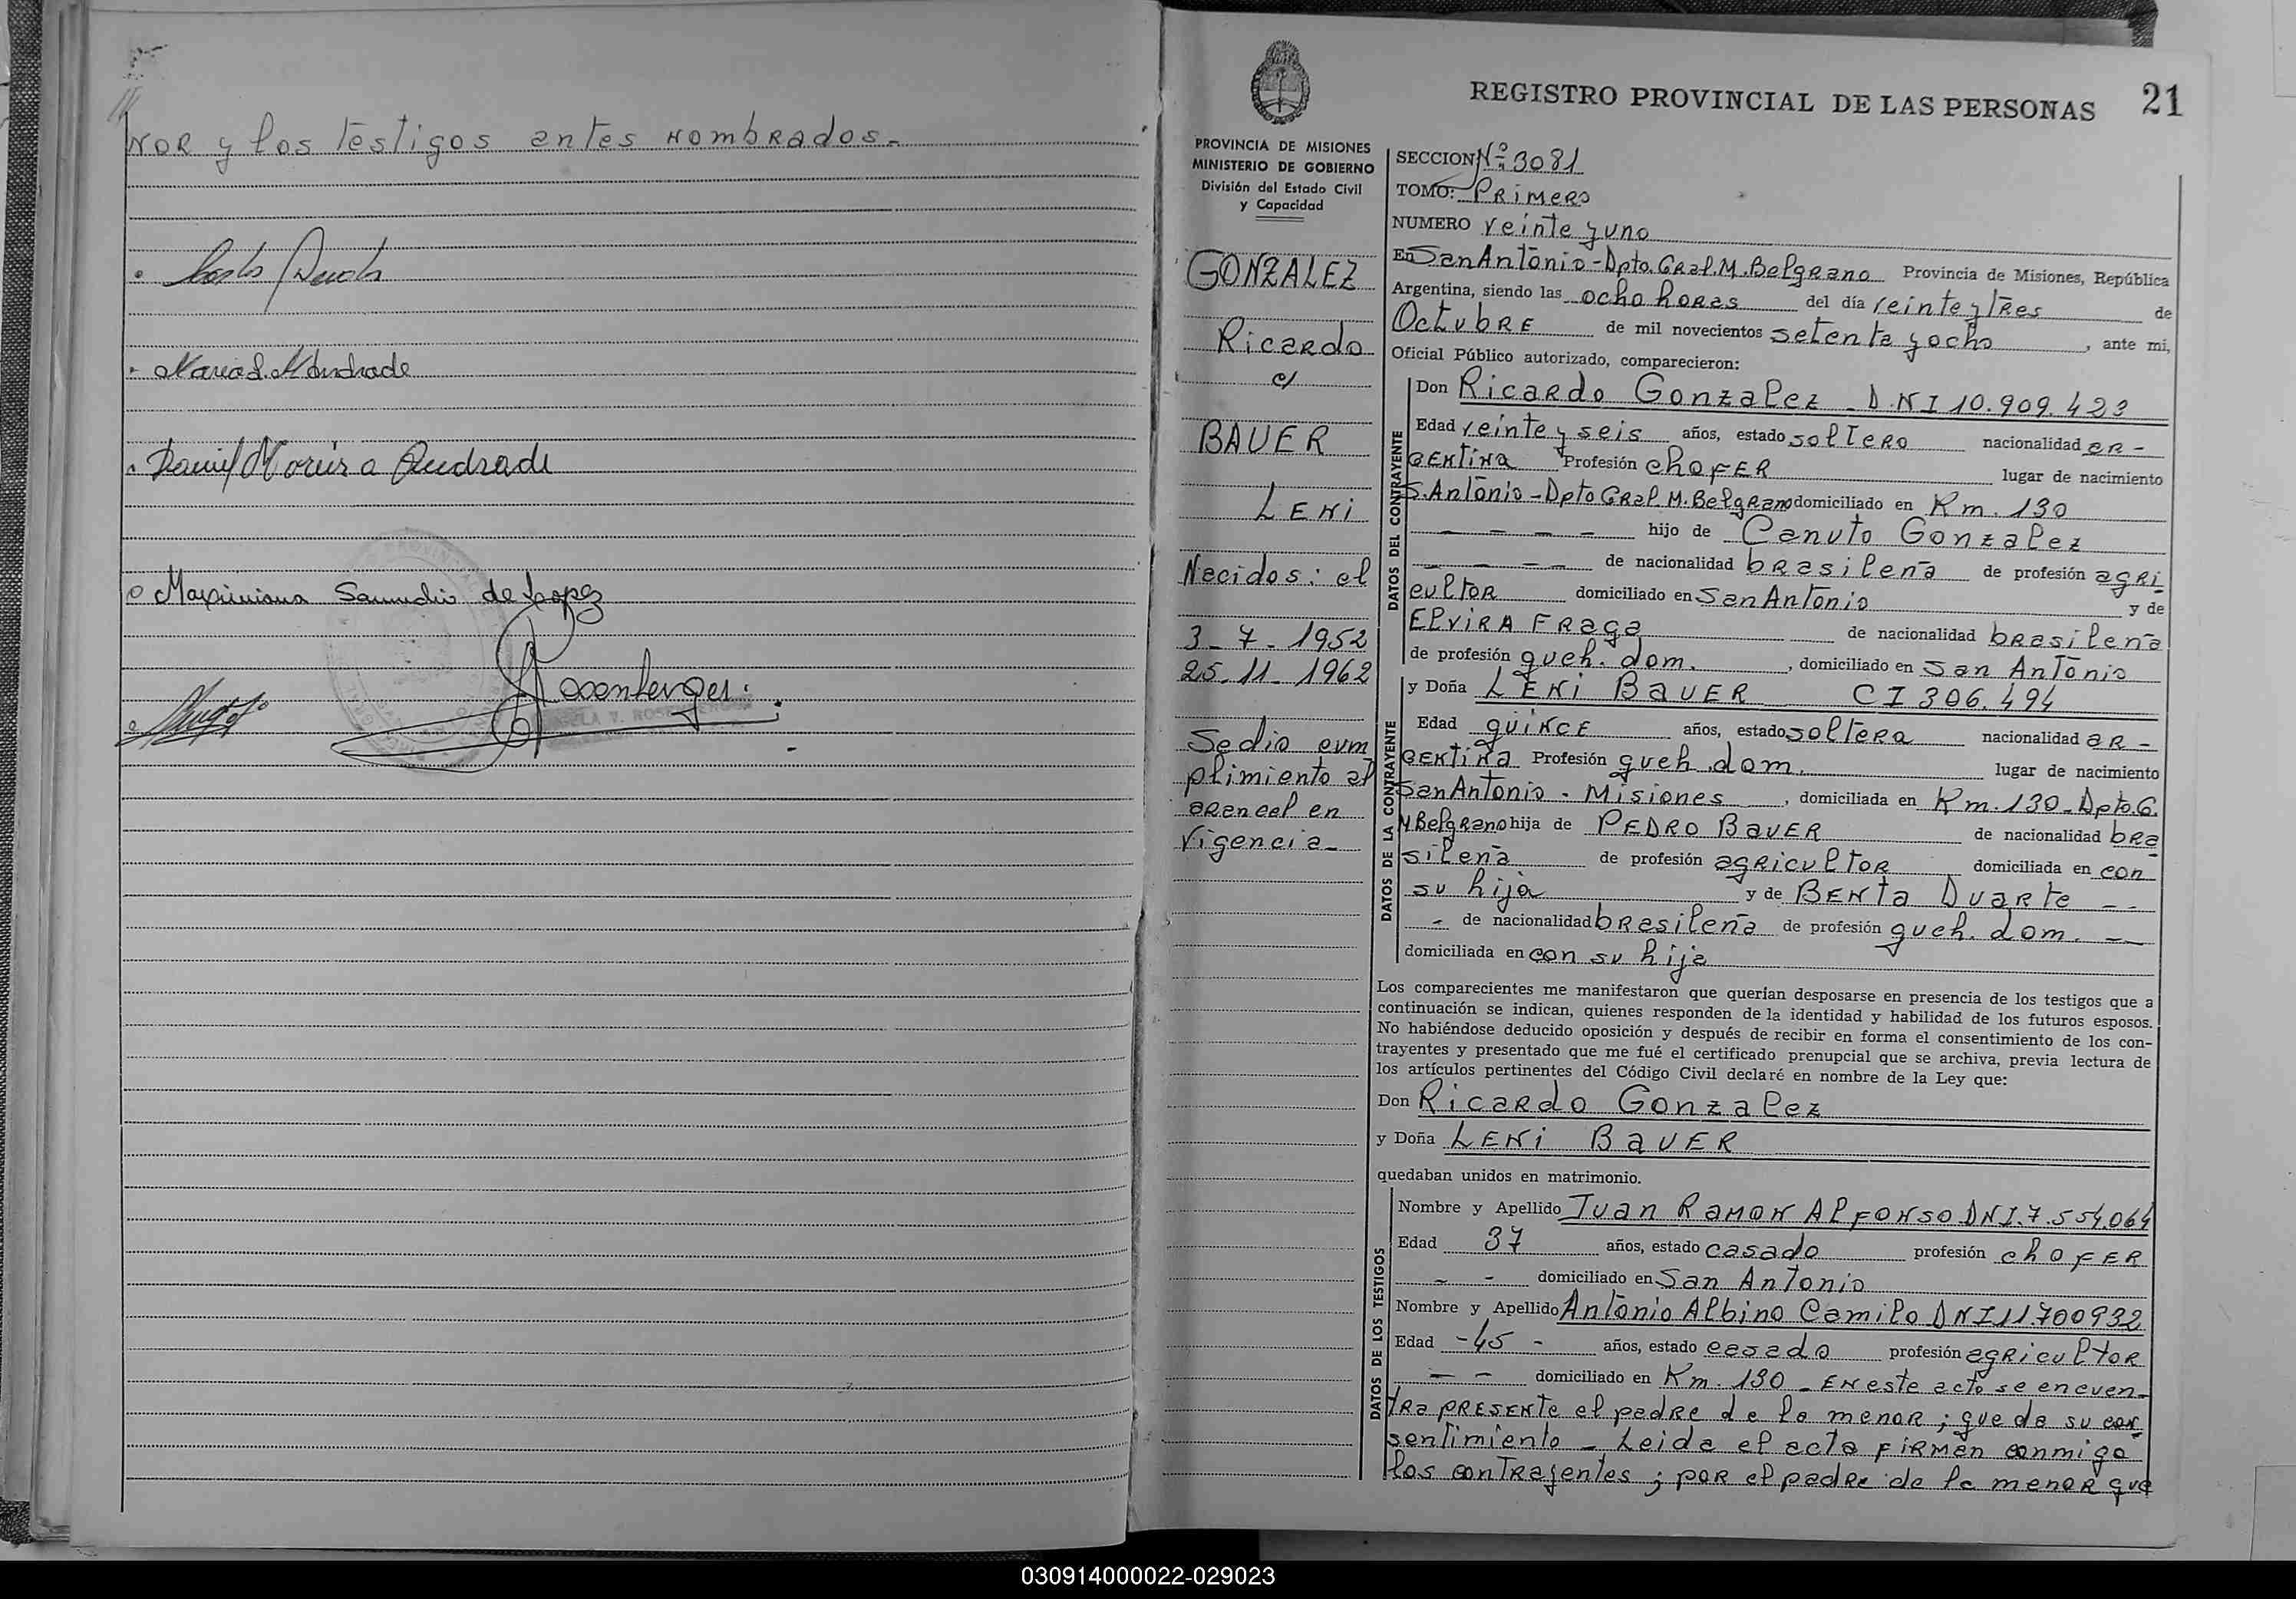 NOR y los testigos antes nombrados.-
Daniel Moreira Andrade
Maximiana Samudio de Lopez
Rosenberger
REGISTRO PROVINCIAL DE LAS PERSONAS 21
PROVINCIA DE MISIONES
MINISTERIO DE GOBIERNO
División del Estado Civil
y Capacidad
GONZALEZ
Ricardo
c/
BAUER
LENi
Nacidos: el
3-7-1952
25-11-1962
Se dio cum
plimiento al
arancel en
vigencia-
SECCION Nº 3081
TOMO: Primero
NUMERO veinte y uno
En San Antonio-Dpto. Gral. M. Belgrano Provincia de Misiones, República
Argentina, siendo las ocho horas del día veinte y tres de
Octubre de mil novecientos setenta y ocho, ante mí,
Oficial Público autorizado, comparecieron:
DATOS DEL CONTRAYENTE
Don Ricardo Gonzalez - DNI 10.909.423
Edad veinte y seis años, estado soltero nacionalidad ar-
gentina Profesión chofer lugar de nacimiento
S. Antonio-Dpto Gral. M. Belgrano domiciliado en Km. 130
- - - - hijo de Canuto Gonzalez
- - - - de nacionalidad brasileña de profesión agri
cultor domiciliado en San Antonio y de
Elvira Fraga de nacionalidad brasileña
de profesión queh. dom., domiciliado en San Antonio
DATOS DE LA CONTRAYENTE
y Doña LENi BAUER CI 306.494
Edad quince años, estado soltera nacionalidad ar-
gentina Profesión queh. dom. lugar de nacimiento
San Antonio - Misiones, domiciliada en Km. 130-Dpto. G.
M Belgrano hija de PEDRO BAUER de nacionalidad bra
sileña de profesión agricultor domiciliada en con
su hija y de BENta Duarte - -
- de nacionalidad brasileña de profesión queh. dom. - -
domiciliada en con su hija
Los comparecientes me manifestaron que querían desposarse en presencia de los testigos que a
continuación se indican, quienes responden de la identidad y habilidad de los futuros esposos.
No habiéndose deducido oposición y después de recibir en forma el consentimiento de los con-
trayentes y presentado que me fué el certificado prenupcial que se archiva, previa lectura de
los artículos pertinentes del Código Civil declaré en nombre de la Ley que:
Don Ricardo Gonzalez
y Doña LENi BAUER
quedaban unidos en matrimonio.
DATOS DE LOS TESTIGOS
Nombre y Apellido Juan Ramon Alfonso DNI. 7.554.064
Edad 37 años, estado casado profesión chofer
- - domiciliado en San Antonio
Nombre y Apellido Antonio Albino Camilo DNI 11.700932
Edad -45- años, estado casado profesión agricultor
- - domiciliado en Km. 130 - En este acto se encuen-
tra presente el padre de la menor; que da su con
sentimiento - Leida el acta firman conmigo
los contrayentes; por el padre de la menor que
030914000022-029023